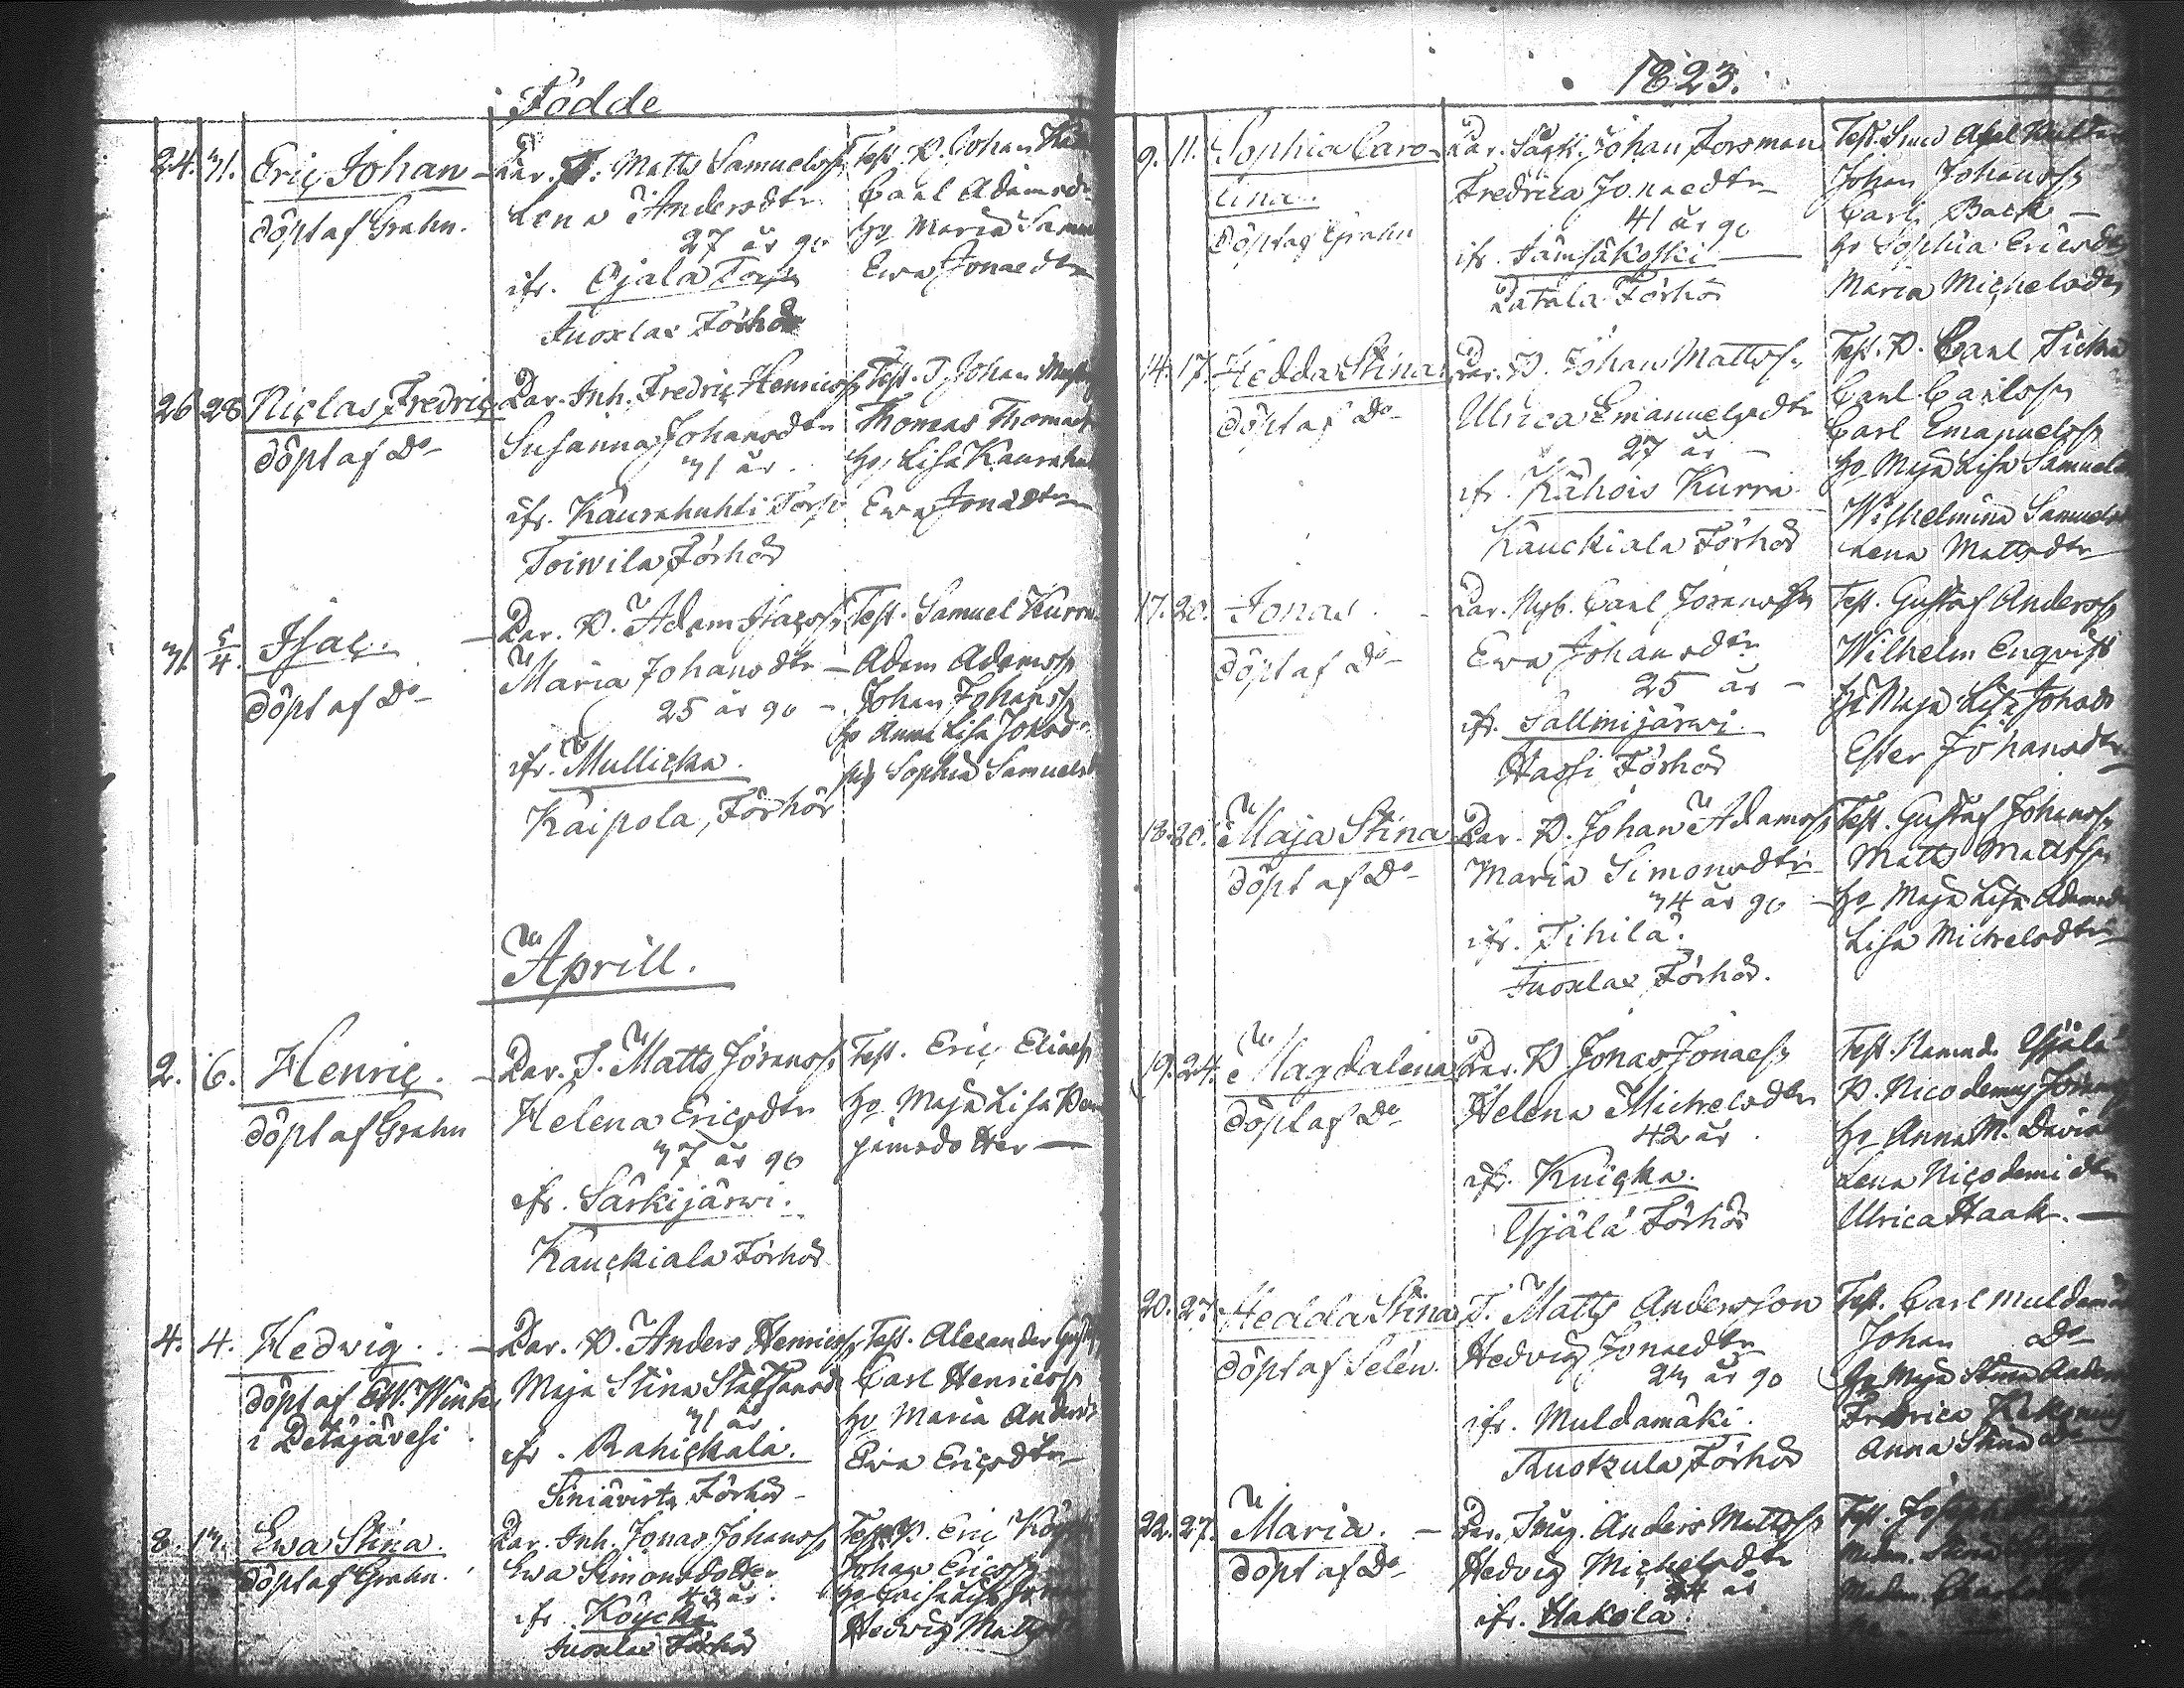 Födde
24. 31. Eric Johan
döpt af Grahn.
Par. T. Matts Samuelss.
Lena Andersdtr
27 år go
ifr. Ojala Torp
Juoxlax Förhör
Test. B. Johan
Carl Adamsd
Ho Maria
Ewa Jonaedtr
26 28 Niclas Fredric
döpt af Do
Par. Inh. Fredric Henricss.
Susanna Johansdtr
31 år.
ifr. Kaurahuhti Torp
Toiwila Förhör
Test. T. Johan
Thomas Thomass
Ho Lisa
Ewa Jonaedtr
31. 5/4. Isac.
döpt af Do
Par. B. Adam Isacss.
Maria Johansdtr
25 år go
ifr. Mullicka.
Kaipola, Förhör
Test. Samuel Kurra
Adam Adamss.
Johan Johanss.
Ho Anna Lisa
pig Sophia Samuelsd
Aprill.
2. 6. Henric.
döpt af Grahn
Par. T. Matts Jöranss.
Helena Ericsdtr
37 år go
ifr. Särkijärwi.
Kauckiala Förhör
Test. Eric Eliaes
Ho Maja Lisa
4. 4. Hedwig.
döpt af
i Petäjävesi
Par. B. Anders Henricss.
Maja Stina Staffansd
31 år
ifr. Rahickala.
Siniävirta Förhör
Test. Alexander
Carl Henricss.
Ho Maria Andersd
Ewa Ericsdtr
8. 13. Ewa Stina.
döpt af Grahn.
Par. Inh. Jonas Johanss.
Ewa Simonsdotter
43 år.
ifr. Köycke
Juoxlax Förhör
Test. B. Eric
Johan Ericss.
Hedwig Matts
1823.
9. 11. Sophia Caro-
lina.
döpt af Grahn
Par. Johan Forsman
Fredrica Jonaedtr
41 år go
ifr. Jämsäkoski
Patala Förhör
Test. Axel
Johan Johanss.
Carl Back
Ho Sophia Ericsd
Maria Michelsd
14. 17. Hedda Stina
döpt af Do
Par. B. Johan Mattss.
Ulrica Emanuelsdtr
27 år
ifr. Kähois Kurra
Kauckiala Förhör
Test. B. Carl
Carl Carlss.
Carl Emanuelss.
Ho Maja Lisa Samuels
Wilhelmina Samuels
Lena Mattsdtr
17. 20. Jonas.
döpt af Do
Par. Nyb. Carl Jöranss.
Ewa Johansdtr
25 år
ifr. Sallinijärwi.
Hassi Förhör
Test. Gustaf Anderss.
Wilhelm Enqvist
Ho Maja Lisa
Ester Johansdtr
18. 20. Maja Stina
döpt af Do
Par. B. Johan Adamss.
Maria Simonsdtr
34 år go
ifr. Tihilä.
Juoxlax Förhör.
Test. Gustaf Johanss.
Matts Mattss.
Ho Maja Lisa Adamsd
Lisa Michelsdtr
19. 24. Magdalena
döpt af Do
Par. B Jonas Jonaes.
Helena Michelsdtr
42 år.
ifr. Knicka.
Ysjälä Förhör
Test. Ysjälä
B. Nicodemus
Ho Anna M. David
Lena Nicodemi dtr
Ulrica Haak.
20. 27. Hedda Stina
döpt af Selén.
T. Matts Andersson
Hedvig Jonaedtr
23 år go
ifr. Muldamäki.
Ruotzula Förhör
Test. Carl Muldamä
Johan Do
Ho Maja Stina
Fredrica
Anna Stina Do
22. 27. Maria.
döpt af Do
Par. Anders Mattss.
Hedvig Michelsdtr
24 år
ifr. Hakola.
Test.